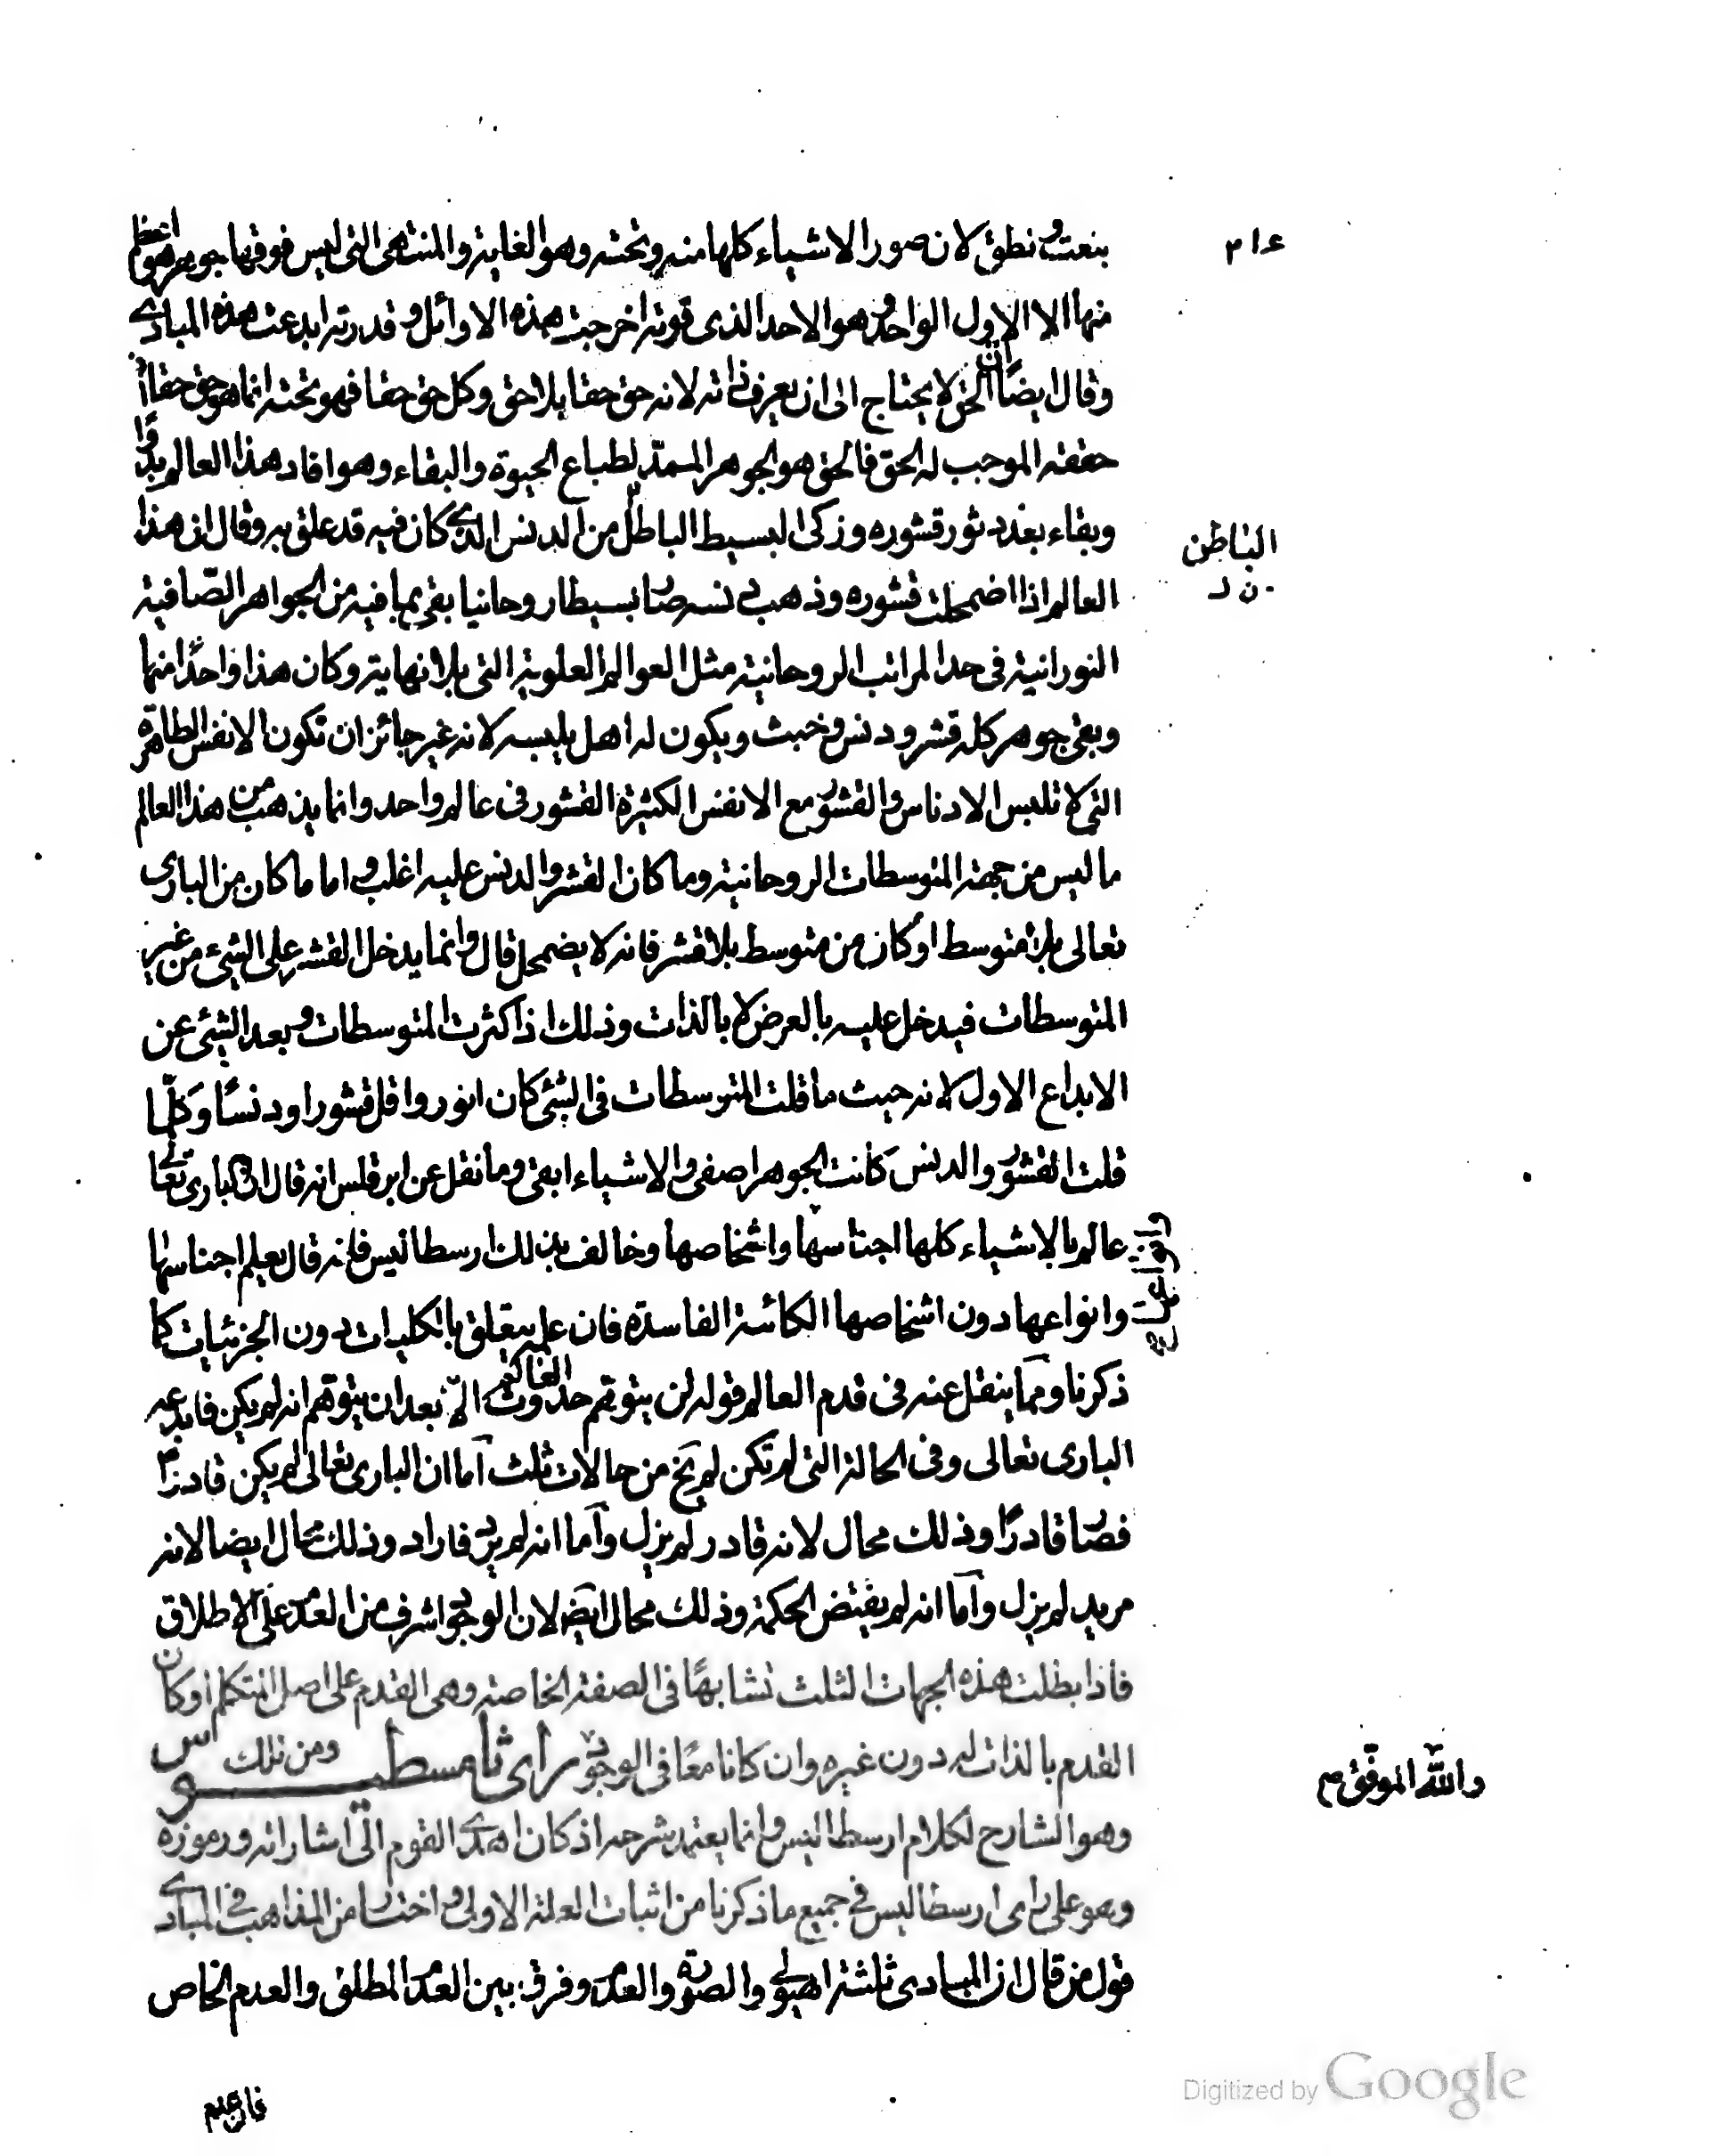 بنعت ونطق لان صور الاشياء كلها منه وتحته وهو الغاية والمنتهى التى ليس فوقها جوهر هو اعظم
منها الا الاول الواحد وهو الاحد الذى قوته اخرجت هذه الاوائل وقدرته ابدعت هذه المبادى
وقال ايضًا ان الحق لا يحتاج الى ان يعرف ذاته لانه حق حقا بلا حق وكل حق حقا فهو تحته انما هو حق حقا اذ
حققه الموجب له الحق فالحق هو الجوهر الممدّ لطباع الحيوة والبقاء وهو افاد هذا العالم بدوًا
وبقاء بعد دثور قشوره وزكى البسيط الباطل من الدنس الذى كان فيه قد علق به وقال ان هذا
العالم اذا اضمحلت قشوره وذهب دنسه صار بسيطا روحانيا بقى بما فيه من الجواهر الصّافية
النورانية فى حد المراتب الروحانية مثل العوالم العلوية التى بلا نهاية وكان هذا واحدًا منها
وبقى جوهر كله قشر ودنس وخبث ويكون له اهل يلبسه لانه غير جائز ان تكون الانفس الطاهرة
التى لا تلبس الادناس والقشور مع الانفس الكثيرة القشور فى عالم واحد وانما يذهب من هذا العالم
ما ليس من جهة المتوسطات الروحانية وما كان القشر والدنس عليه اغلب واما ما كان من البارى
تعالى بلا متوسط او كان من متوسط بلا قشر فانه لا يضمحل قال وانما يدخل القشر على الشئ من غير
المتوسطات فيدخل عليه بالعرض لا بالذات وذلك اذا كثرت المتوسطات وبعد الشئ عن
الابداع الاول لانه حيث ما قلت المتوسطات فى الشئ كان انور واقل قشورا ودنسًا وكلّما
قلت القشور والدنس كانت الجواهر اصفى والاشياء ابقى ومما نقل عن ابرقلس انه قال ان البارى تعالى
عالم بالاشياء كلها اجناسها واشخاصها وخالف بذلك ارسطاليس فانه قال يعلم اجناسها
وانواعها دون اشخاصها الكائنة الفاسدة فان علمه يتعلق بالكليات دون الجزئيات كما
ذكرنا ومما ينقل عنه فى قدم العالم قوله لن يتوهم حدوث العالم الّا بعد ان يتوهم انه لم يكن فابدعه
البارى تعالى وفى الحالة التى لم تكن لم يخ من حالات ثلث اما ان البارى تعالى لم يكن قادرًا
فصار قادرًا وذلك محال لانه قادر لم يزل واما انه لم يرد فاراد وذلك محال ايضا لانه
مريد لم يزل واما انه لم يقتض الحكمة وذلك محال ايض لان الوجود اشرف من العدم على الاطلاق
فاذا بطلت هذه الجهات الثلث تشابهًا فى الصفة الخاصة وهى القدم على اصل المتكلم او كان
القدم بالذات له دون غيره وان كانا معًا فى الوجود راى ثامسطيوس ومن تلك
وهو الشارح لكلام ارسطاليس وانما يعتمد شرحه اذ كان اهدى القوم الى اشاراته ورموزه
وهو على راى ارسطاليس فى جميع ما ذكرنا من اثبات العلة الاولى واختار من المذاهب فى المبادى
قول من قال ان المبادى ثلثة الهيولى والصورة والعدم وفرق بين العدم المطلق والعدم الخاص
الباطن
ن ل
والله الموفق
فان عدم
Digitized by Google